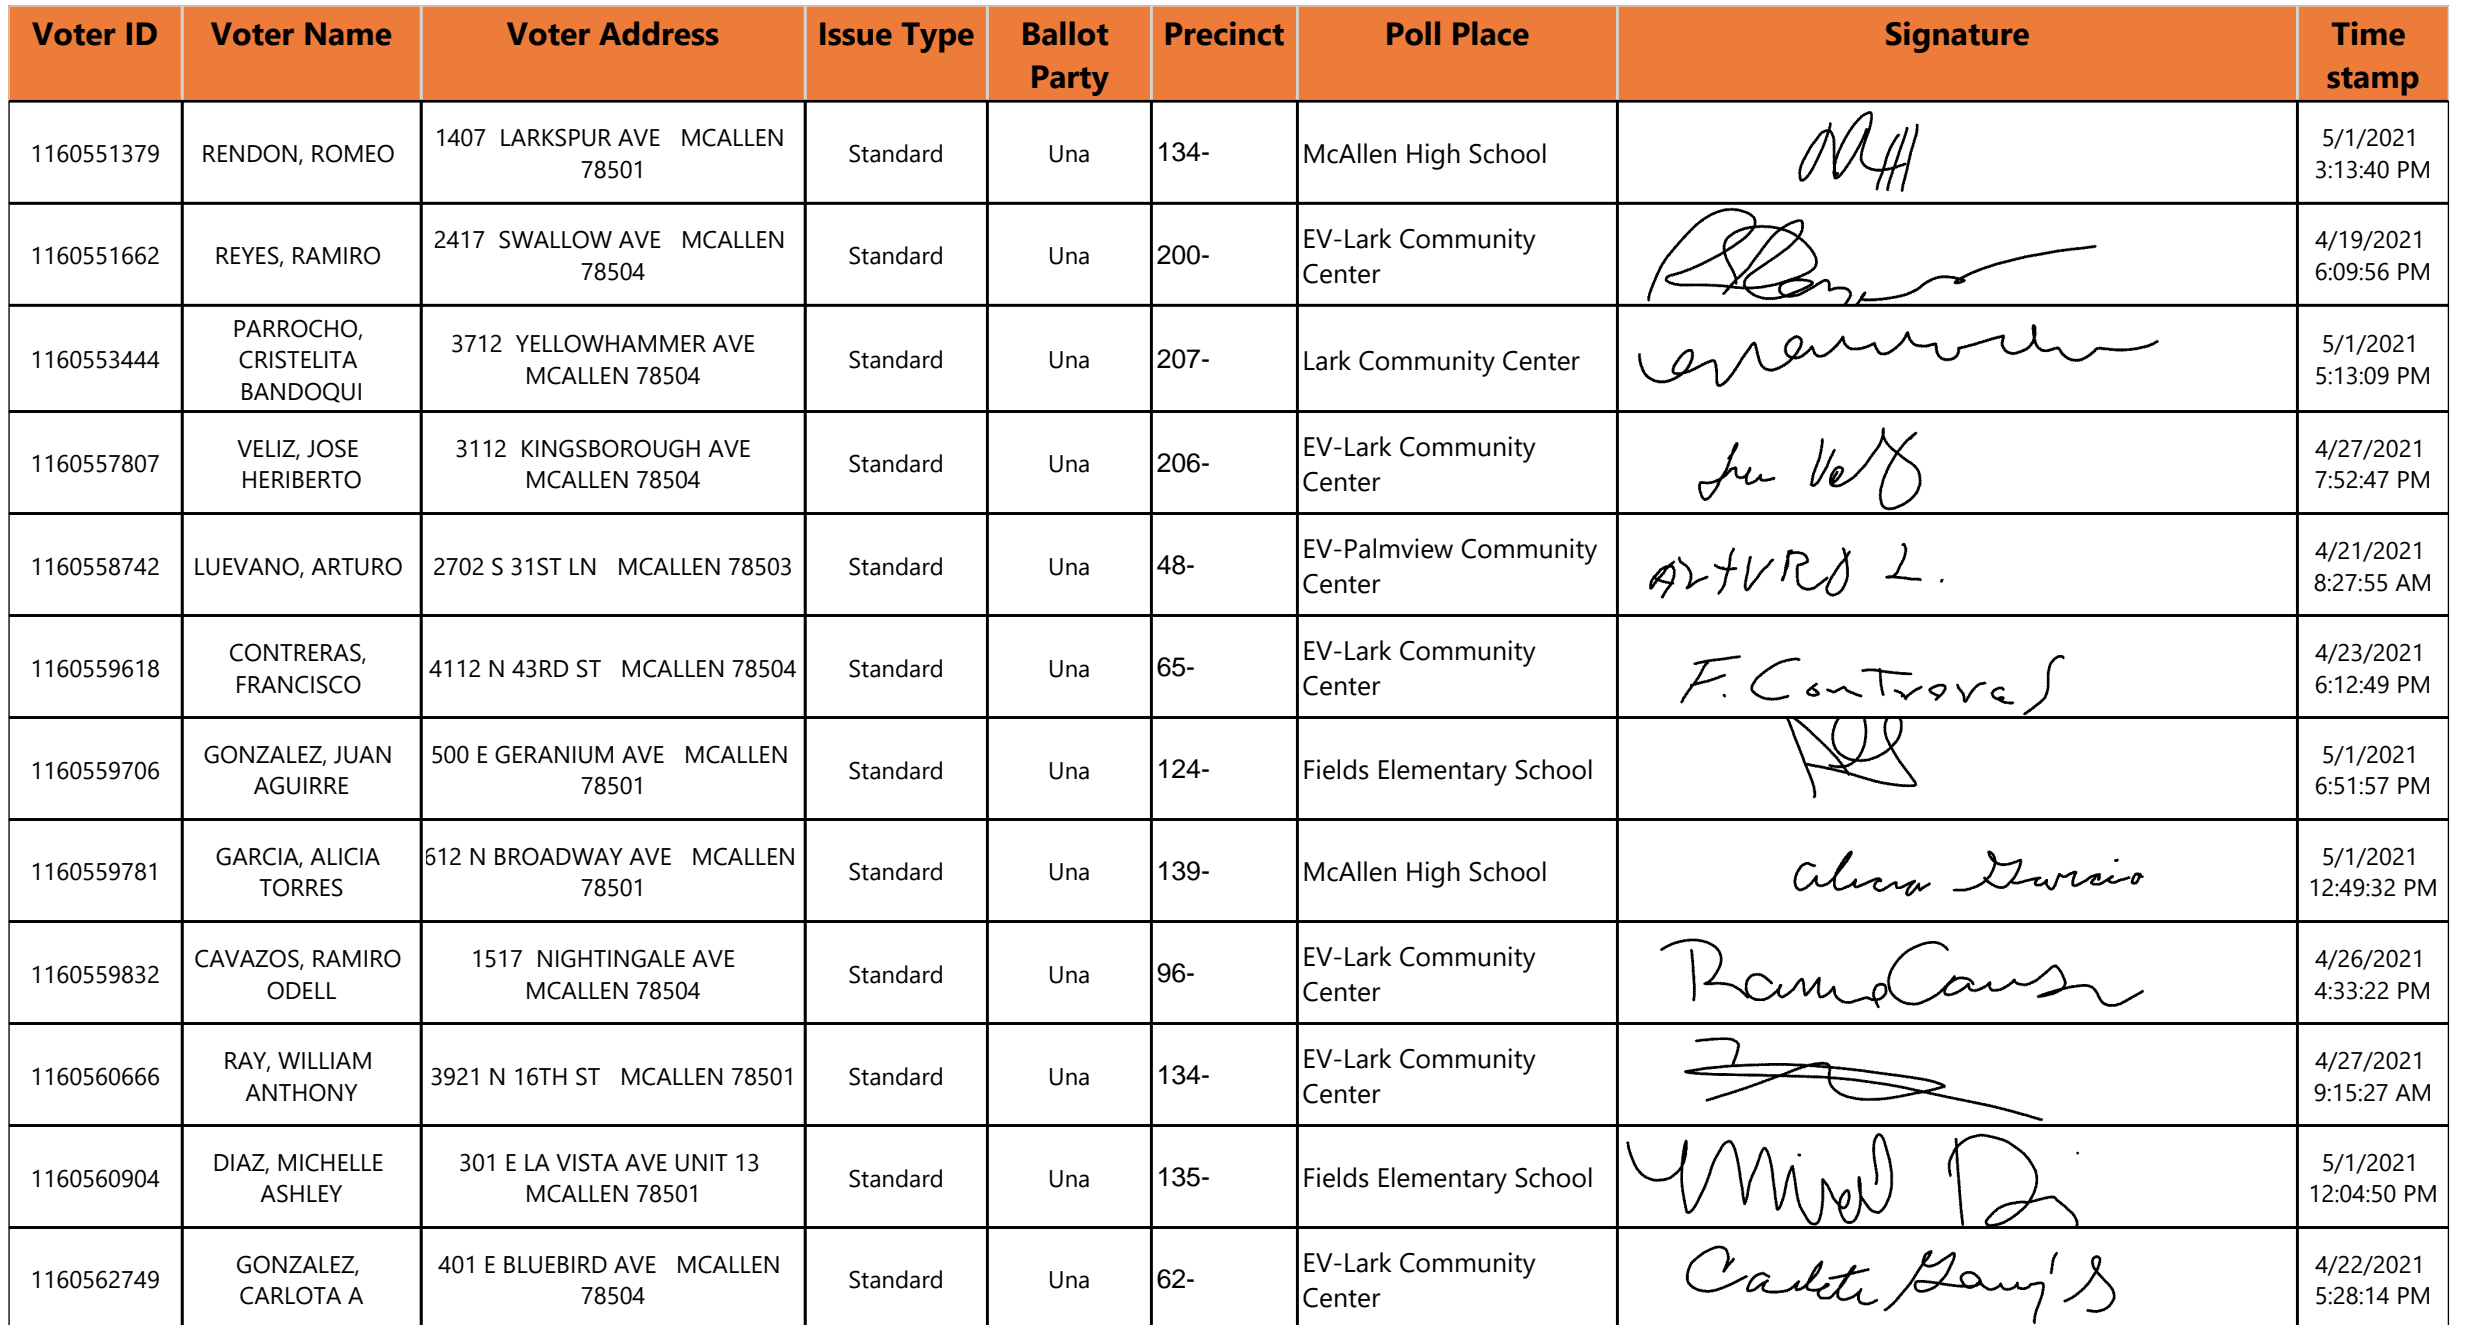 Voter ID Voter Name Voter Address Issue Type Ballot Party Precinct Poll Place Signature Time stamp
1160551379 RENDON, ROMEO 1407 LARKSPUR AVE MCALLEN 78501 Standard Una 134- McAllen High School 5/1/2021 3:13:40 PM
1160551662 REYES, RAMIRO 2417 SWALLOW AVE MCALLEN 78504 Standard Una 200- EV-Lark Community Center 4/19/2021 6:09:56 PM
1160553444 PARROCHO, CRISTELITA BANDOQUI 3712 YELLOWHAMMER AVE MCALLEN 78504 Standard Una 207- Lark Community Center 5/1/2021 5:13:09 PM
1160557807 VELIZ, JOSE HERIBERTO 3112 KINGSBOROUGH AVE MCALLEN 78504 Standard Una 206- EV-Lark Community Center 4/27/2021 7:52:47 PM
1160558742 LUEVANO, ARTURO 2702 S 31ST LN MCALLEN 78503 Standard Una 48- EV-Palmview Community Center ARTURO L. 4/21/2021 8:27:55 AM
1160559618 CONTRERAS, FRANCISCO 4112 N 43RD ST MCALLEN 78504 Standard Una 65- EV-Lark Community Center F. Contreras 4/23/2021 6:12:49 PM
1160559706 GONZALEZ, JUAN AGUIRRE 500 E GERANIUM AVE MCALLEN 78501 Standard Una 124- Fields Elementary School 5/1/2021 6:51:57 PM
1160559781 GARCIA, ALICIA TORRES 612 N BROADWAY AVE MCALLEN 78501 Standard Una 139- McAllen High School Alicia Garcia 5/1/2021 12:49:32 PM
1160559832 CAVAZOS, RAMIRO ODELL 1517 NIGHTINGALE AVE MCALLEN 78504 Standard Una 96- EV-Lark Community Center 4/26/2021 4:33:22 PM
1160560666 RAY, WILLIAM ANTHONY 3921 N 16TH ST MCALLEN 78501 Standard Una 134- EV-Lark Community Center 4/27/2021 9:15:27 AM
1160560904 DIAZ, MICHELLE ASHLEY 301 E LA VISTA AVE UNIT 13 MCALLEN 78501 Standard Una 135- Fields Elementary School 5/1/2021 12:04:50 PM
1160562749 GONZALEZ, CARLOTA A 401 E BLUEBIRD AVE MCALLEN 78504 Standard Una 62- EV-Lark Community Center 4/22/2021 5:28:14 PM